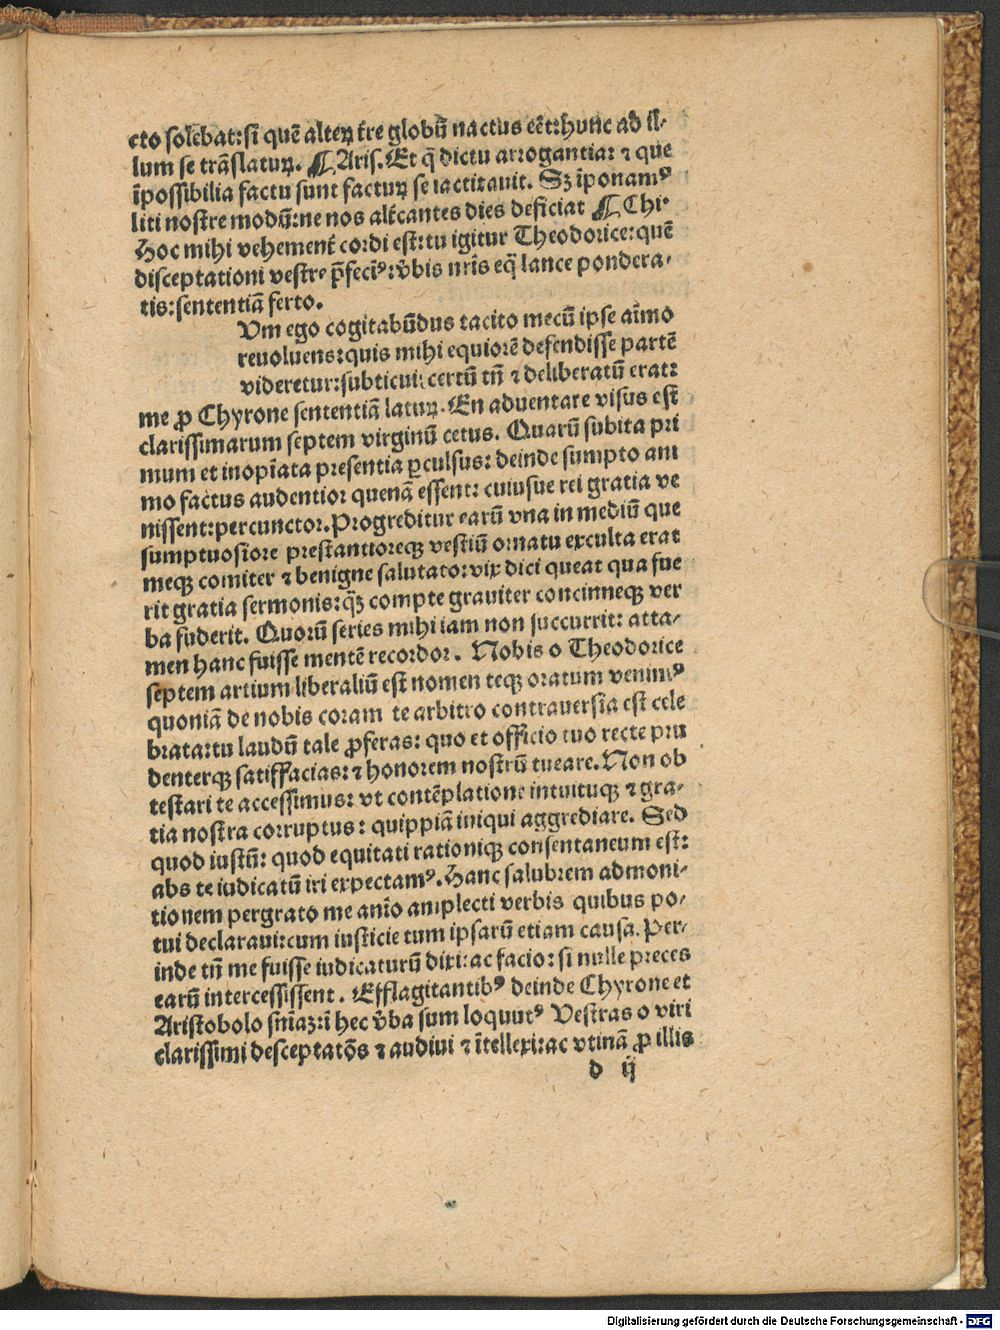 cto solebat: si quē alteꝝ t̄re globū nactus eēt: hunc ad il-
lum se trāslatuꝝ. ¶ Aris. Et q̄ dictu arrogantia: ⁊ que
īpossibilia factu sunt factuꝝ se iactitauit. Sꝫ īponamꝰ
liti nostre modū: ne nos alt̄cantes dies deficiat ¶ Chi.
Hoc mihi vehemen̄t cordi est: tu igitur Theodorice: quē
disceptationi vestre p̄feciꝰ: v̄bis nr̄is eq̄ lance pondera-
tis: sententiā ferto.
Vm ego cogitabūdus tacito mecū ipse aīmo
reuoluens: quis mihi equiorē defendisse partē
videretur: subticui: certū tn̄ ⁊ deliberatū erat:
me ꝓ Chyrone sententiā latuꝝ. En aduentare visus est
clarissimarum septem virginū cetus. Quarū subita pri
mum et inopīata presentia ꝑculsus: deinde sumpto ani
mo factus audentior quenā essent: cuiusue rei gratia ve
nissent: percunctor. Progreditur earū vna in mediū que
sumptuosiore prestantioreqꝫ vestiū ornatu exculta erat
meqꝫ comiter ⁊ benigne salutato: vix dici queat qua fue
rit gratia sermonis: q̄ꝫ compte grauiter concinneqꝫ ver
ba fuderit. Quorū series mihi iam non succurrit: atta-
men hanc fuisse mentē recordor. Nobis o Theodorice
septem artium liberaliū est nomen teqꝫ oratum venimꝰ
quoniā de nobis coram te arbitro contrauersia est cele
brata: tu laudū tale ꝓferas: quo et officio tuo recte pru
denterqꝫ satiffacias: ⁊ honorem nostrū tueare. Non ob
testari te accessimus: vt contēplatione intuituqꝫ ⁊ gra-
tia nostra corruptus: quippiā iniqui aggrediare. Sed
quod iustū: quod equitati rationiqꝫ consentaneum est:
abs te iudicatū iri expectamꝰ. Hanc salubrem admoni-
tionem pergrato me anīo amplecti verbis quibus po-
tui declaraui: cum iusticie tum ipsarū etiam causa. Per-
inde tn̄ me fuisse iudicaturū dixi: ac facio: si nulle preces
earū intercessissent. Efflagitantibꝰ deinde Chyrone et
Aristobolo sn̄iaꝫ: ī hec v̄ba sum loquutꝰ Vestras o viri
clarissimi desceptatōs ⁊ audiui ⁊ ītellexi: ac vtinā ꝓ illis
d ij
Digitalisierung gefördert durch die Deutsche Forschungsgemeinschaft - DFG